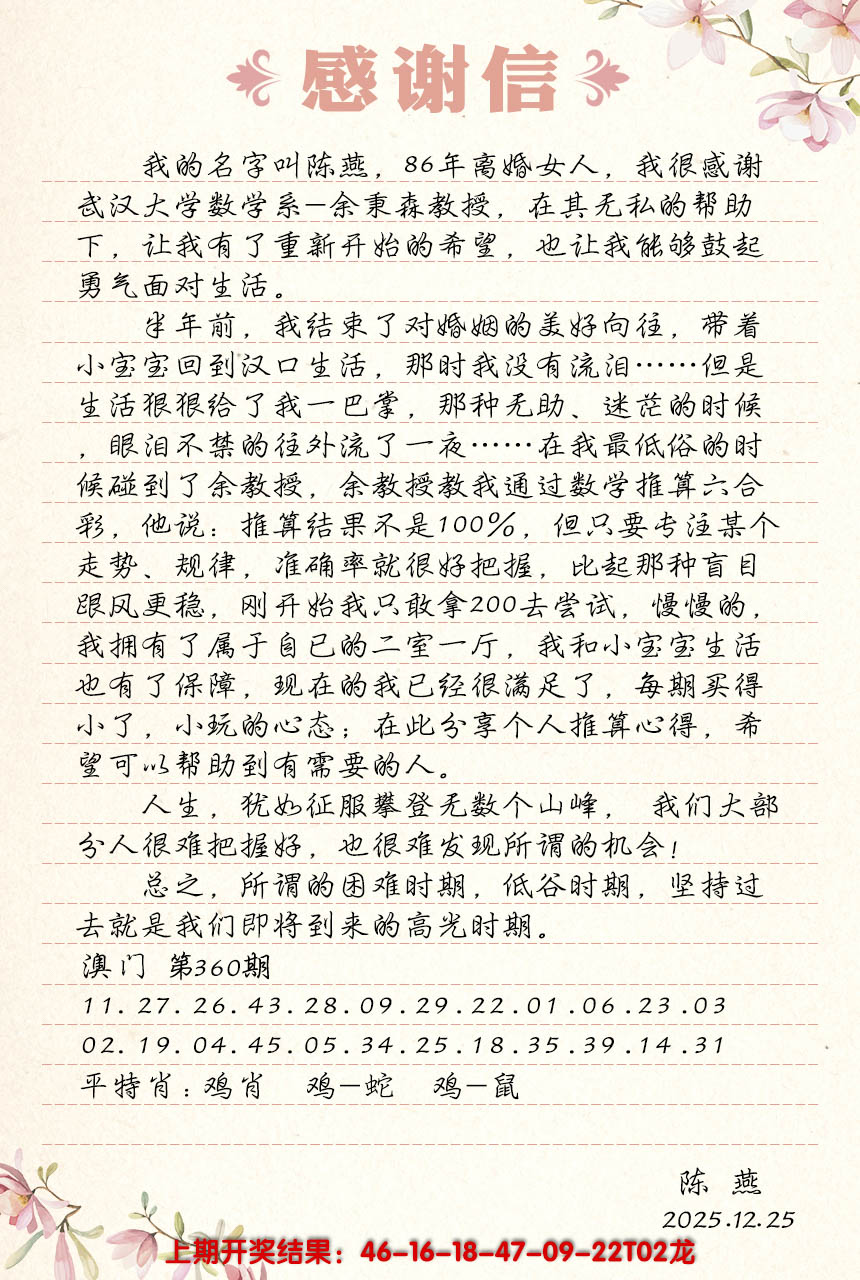 感谢信
我的名字叫陈燕，86年离婚女人，我很感谢
武汉大学数学系-余秉森教授，在其无私的帮助
下，让我有了重新开始的希望，也让我能够鼓起
勇气面对生活。
半年前，我结束了对婚姻的美好向往，带着
小宝宝回到汉口生活，那时我没有流泪……但是
生活狠狠给了我一巴掌，那种无助、迷茫的时候
，眼泪不禁的往外流了一夜……在我最低俗的时
候碰到了余教授，余教授教我通过数学推算六合
彩，他说：推算结果不是100%，但只要专注某个
走势、规律，准确率就很好把握，比起那种盲目
跟风更稳，刚开始我只敢拿200去尝试，慢慢的，
我拥有了属于自已的二室一厅，我和小宝宝生活
也有了保障，现在的我已经很满足了，每期买得
小了，小玩的心态；在此分享个人推算心得，希
望可以帮助到有需要的人。
人生，犹如征服攀登无数个山峰， 我们大部
分人很难把握好，也很难发现所谓的机会！
总之，所谓的困难时期，低谷时期，坚持过
去就是我们即将到来的高光时期。
澳门 第360期
11.27.26.43.28.09.29.22.01.06.23.03
02.19.04.45.05.34.25.18.35.39.14.31
平特肖：鸡肖 鸡-蛇 鸡-鼠
陈 燕
2025.12.25
上期开奖结果：46-16-18-47-09-22T02龙